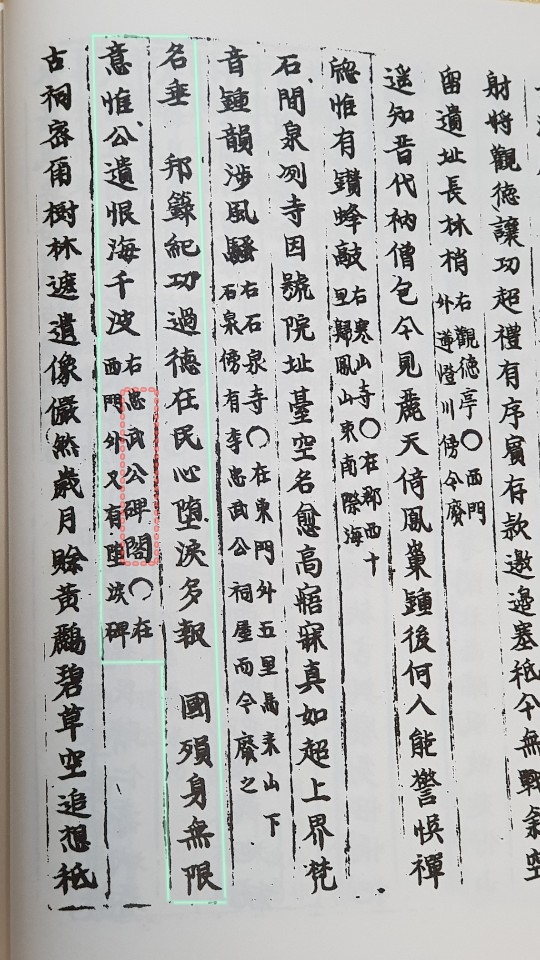 射將觀德讓功超禮有序賓存款邀邊塞祗今無戰空
留遺址長林梢 右觀德亭〇西門
外蓮澄川傍今廢
遥知昔代衲僧包今見麄天侍鳳巢鍾後何人能警悞禪
窓惟有鑽蜂敲 右寒山寺〇在郡西十
里歸鳳山東南際海
石間泉冽寺因號院址臺空名愈高寤寐真如超上界梵
音鍾韻涉風騷 右石泉寺〇在東門外五里禹来山下
石泉傍有李忠武公祠屋而今廢之
名垂 邦籙紀功過德在民心堕淚多報 國殞身無限
意惟公遺恨海千波 右忠武公碑閣〇在
西門外又有堕淚碑
古祠密樹林遮遺像儼然歲月賒黄鸝碧草空追想秪